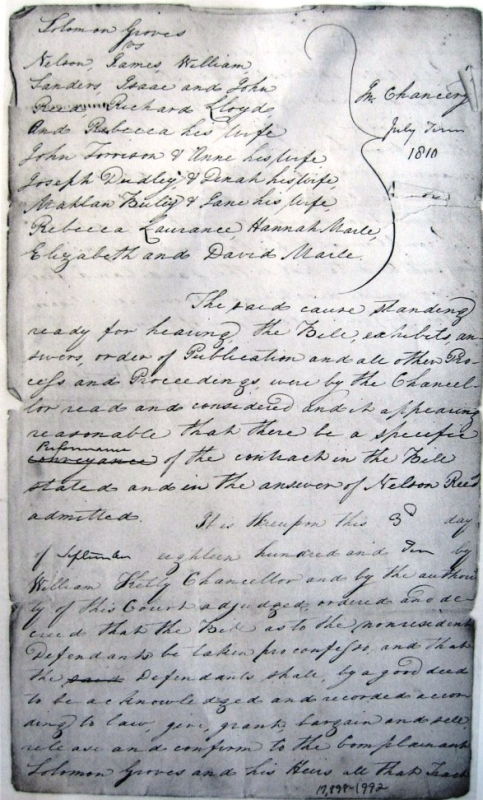 Solomon Groves
vs
Nelson, James, William
Sanders, Isaac and John
Reed Richard Lloyd
and Rebecca his wife
John Torrison & Anne his wife
Joseph Dudley, & Dinah his wife,
Mahlan & Jane his wife,
Rebecca Laurance, Hannah Marle,
Elizabeth and David Marle.
In Chancery
July Term
1810
The said cause standing
ready for hearing, the Bill, exhibits, an-
swers, order of Publication and all other Pro-
cess and Proceedings, were by the Chancel-
lor read and considered and it appearing
reasonable that there be a specific
Performance
conveyance of the contract in the Bill
stated and in the answer of Nelson Reed
admitted. It is thereupon this 3d day
of September eighteen hundred and Ten by
William Kilty Chancellor and by the authori
ty of this Court adjudged, ordered and de-
creed that the Bill as to the nonresident
Defendants be taken pro confesso, and that
the said Defendants shall, by a good deed
to be acknowledged and recorded accor
ding to law, give, grant, bargain and sell
release and confirm to the Complainant
Solomon Groves and his Heirs all that Tract
17,898-1992